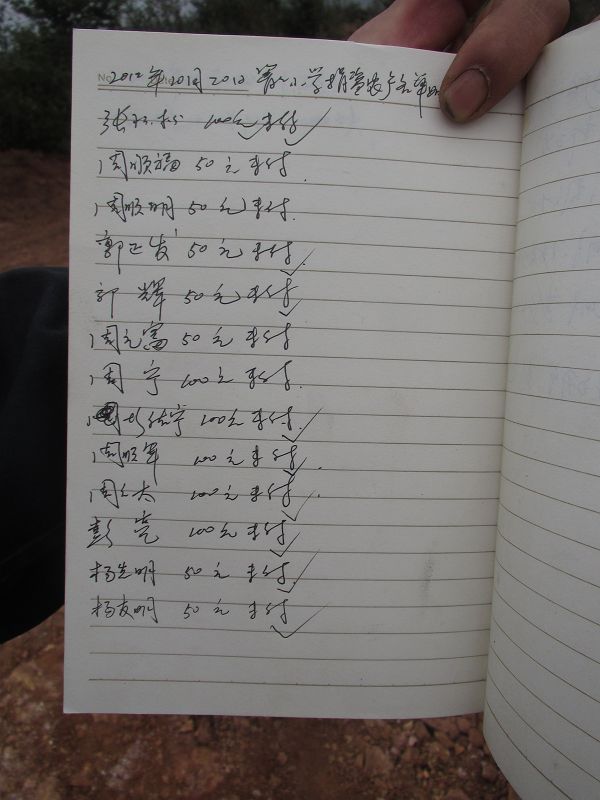 No
2012年10月 2012 小学捐资农户名单
张 100元未付
周顺福 50元未付
周顺明 50元未付
郭正发 50元未付
郭辉 50元未付
周元富 50元未付
周宁 100元未付
100元未付
周顺军 100元未付
周 100元未付
彭亮 100元未付
杨光明 50元未付
杨友明 50元未付